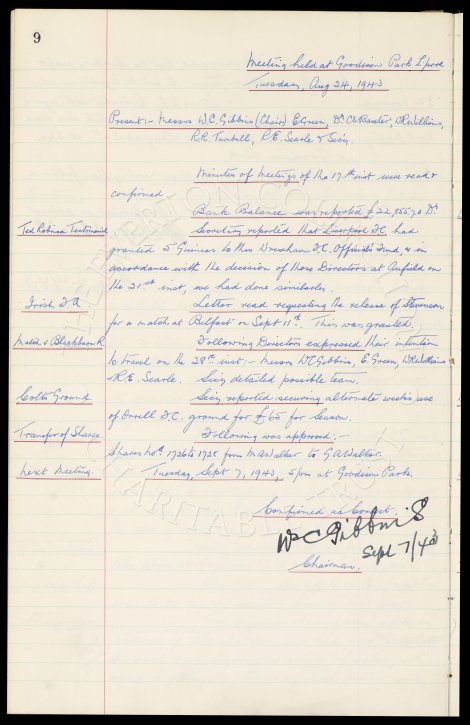 9
Meeting held at Goodison Park L'pool
Tuesday, Aug 24, 1943
Present:- Messrs W.C. Gibbins (Chair) E. Green, Dr C.S. Baxter, W.R. Williams,
R.R. Turnbull, R.E. Searle & Secy.
Minutes of Meetings of the 17th inst were read &
confirmed
Bank Balance was reported £22,855
Ted Robinson Testimonial
Secretary reported that Liverpool FC had
granted 5 Guineas to this Wrexham F.C. Official's Fund & in
accordance with the decision of those Directors at Anfield on
the 21st inst, we had done similarly.
Irish F.A
Letter read requesting the release of Stevenson
for a match at Belfast on Sept 11th. This was granted.
Match v Blackburn R.
Following Directors expressed their intention
to travel on the 28th inst:- Messrs W.C. Gibbins, E. Green, W.R. Williams
R.E. Searle. Secy detailed possible team.
Colts Ground
Secy reported securing alternate weeks use
of Orrell F.C. ground for £65 for season.
Transfer of Shares
Following was approved:-
Shares Nos. 1726 to 1728 from M.A. Walker to G.A. Walker.
Next Meeting.
Tuesday, Sept 7, 1943, 5pm at Goodison Park.
Confirmed as Correct.
W C Gibbins
Sept 7/43
Chairman.
EVERTON CO
CHARITABLE TR